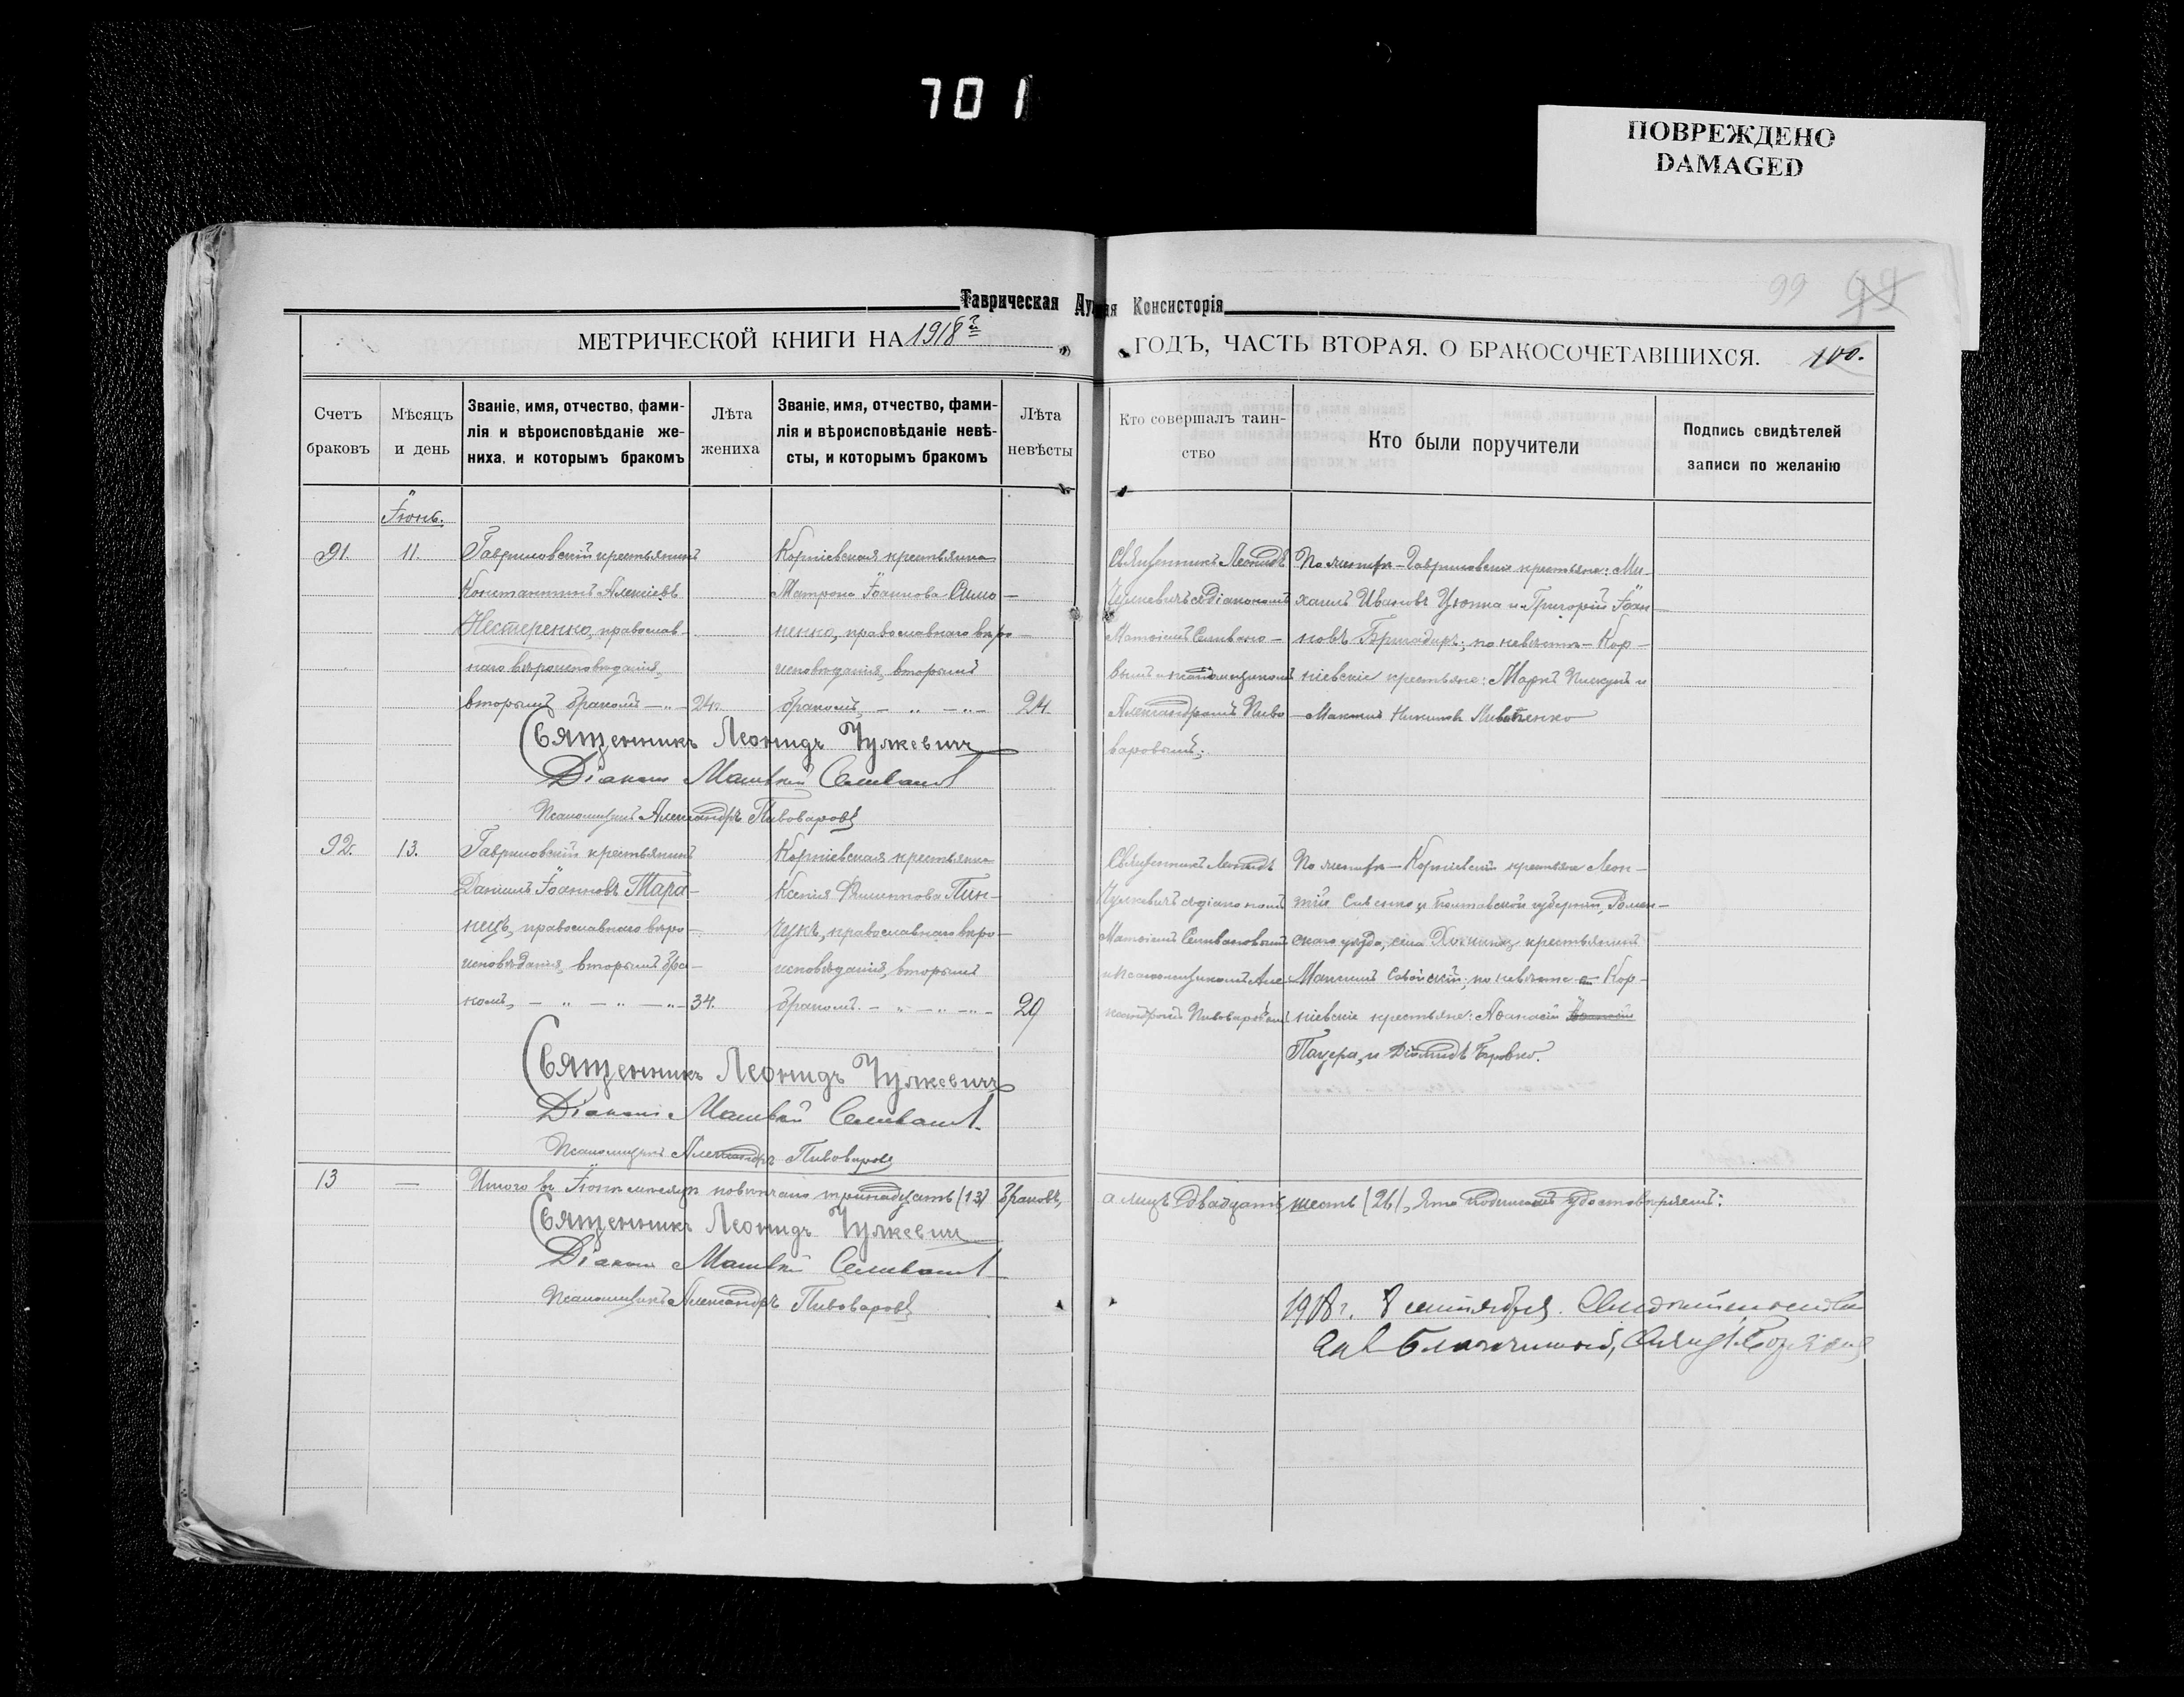 701
ПОВРЕЖДЕНО
DAMAGED
99
Таврическая Духовная Консисторія
МЕТРИЧЕСКОЙ КНИГИ НА 1918 й ГОДЪ, ЧАСТЬ ВТОРАЯ, О БРАКОСОЧЕТАВШИХСЯ. 100.
Счетъ
браковъ
Мѣсяцъ
и день
Званіе, имя, отчество, фами-
лія и вѣроисповѣданіе же-
ниха, и которымъ бракомъ
Лѣта
жениха
Званіе, имя, отчество, фами-
лія и вѣроисповѣданіе невѣ-
сты, и которымъ бракомъ
Лѣта
невѣсты
Кто совершалъ таин-
ство
Кто были поручители
Подпись свидѣтелей
записи по желанію
Іюнь.
91.
11.
Гавриловскій крестьянинъ
Константинъ Алексіевъ
Нестеренко, православ-
наго вѣроисповѣданія,
вторымъ бракомъ 24.
Корніевская крестьянка
Матрона Іоаннова Симо-
ненко, православнаго вѣро-
исповѣданія, вторымъ
бракомъ 24.
Священникъ Леонидъ
Чулкевичъ съ діакономъ
Матвіемъ Селивано-
вымъ и псаломщикомъ
Александромъ Пиво-
варовымъ.
По женихѣ - Гавриловскіе крестьяне: Ми-
хаилъ Ивановъ Цюпка и Григорій Іоан-
новъ Бригадиръ; по невѣстѣ - Кор-
ніевскіе крестьяне: Маркъ Пискунъ и
Максимъ Никитинъ
Священникъ Леонидъ Чулкевичъ
Діаконъ Матвѣй Селивановъ
Псаломщикъ Александръ Пивоваровъ
92.
13.
Гавриловскій крестьянинъ
Даніилъ Іоанновъ Тара-
нецъ, православнаго вѣро-
исповѣданія, вторымъ бра-
комъ, 34.
Корніевская крестьянка
Ксенія Филиппова Пин-
чукъ, православнаго вѣро-
исповѣданія, вторымъ
бракомъ. 29
Священникъ Леонидъ
Чулкевичъ съ діакономъ
Матвіемъ Селивановымъ
и псаломщикомъ Але-
ксандромъ Пивоваровымъ
По женихѣ - Корніевскій крестьянъ Леон-
тій Савенко и Полтавской губерніи, Ромен-
скаго уѣзда, села крестьянинъ
Максимъ по невѣстѣ - Кор-
ніевскіе крестьяне: Аѳанасій
Пацера, и Діомидъ Боровко.
Священникъ Леонидъ Чулкевичъ
Діаконъ Матвѣй Селивановъ
Псаломщикъ Александръ Пивоваровъ
13 — Итого въ Іюнѣ мѣсяцѣ повѣнчано тринадцать (13) браковъ, а лицъ двадцать шесть (26), что подписомъ удостовѣряемъ:
Священникъ Леонидъ Чулкевичъ
Діаконъ Матвѣй Селивановъ
Псаломщикъ Александръ Пивоваровъ
1918 г. 8 сентября.
Благочинный,